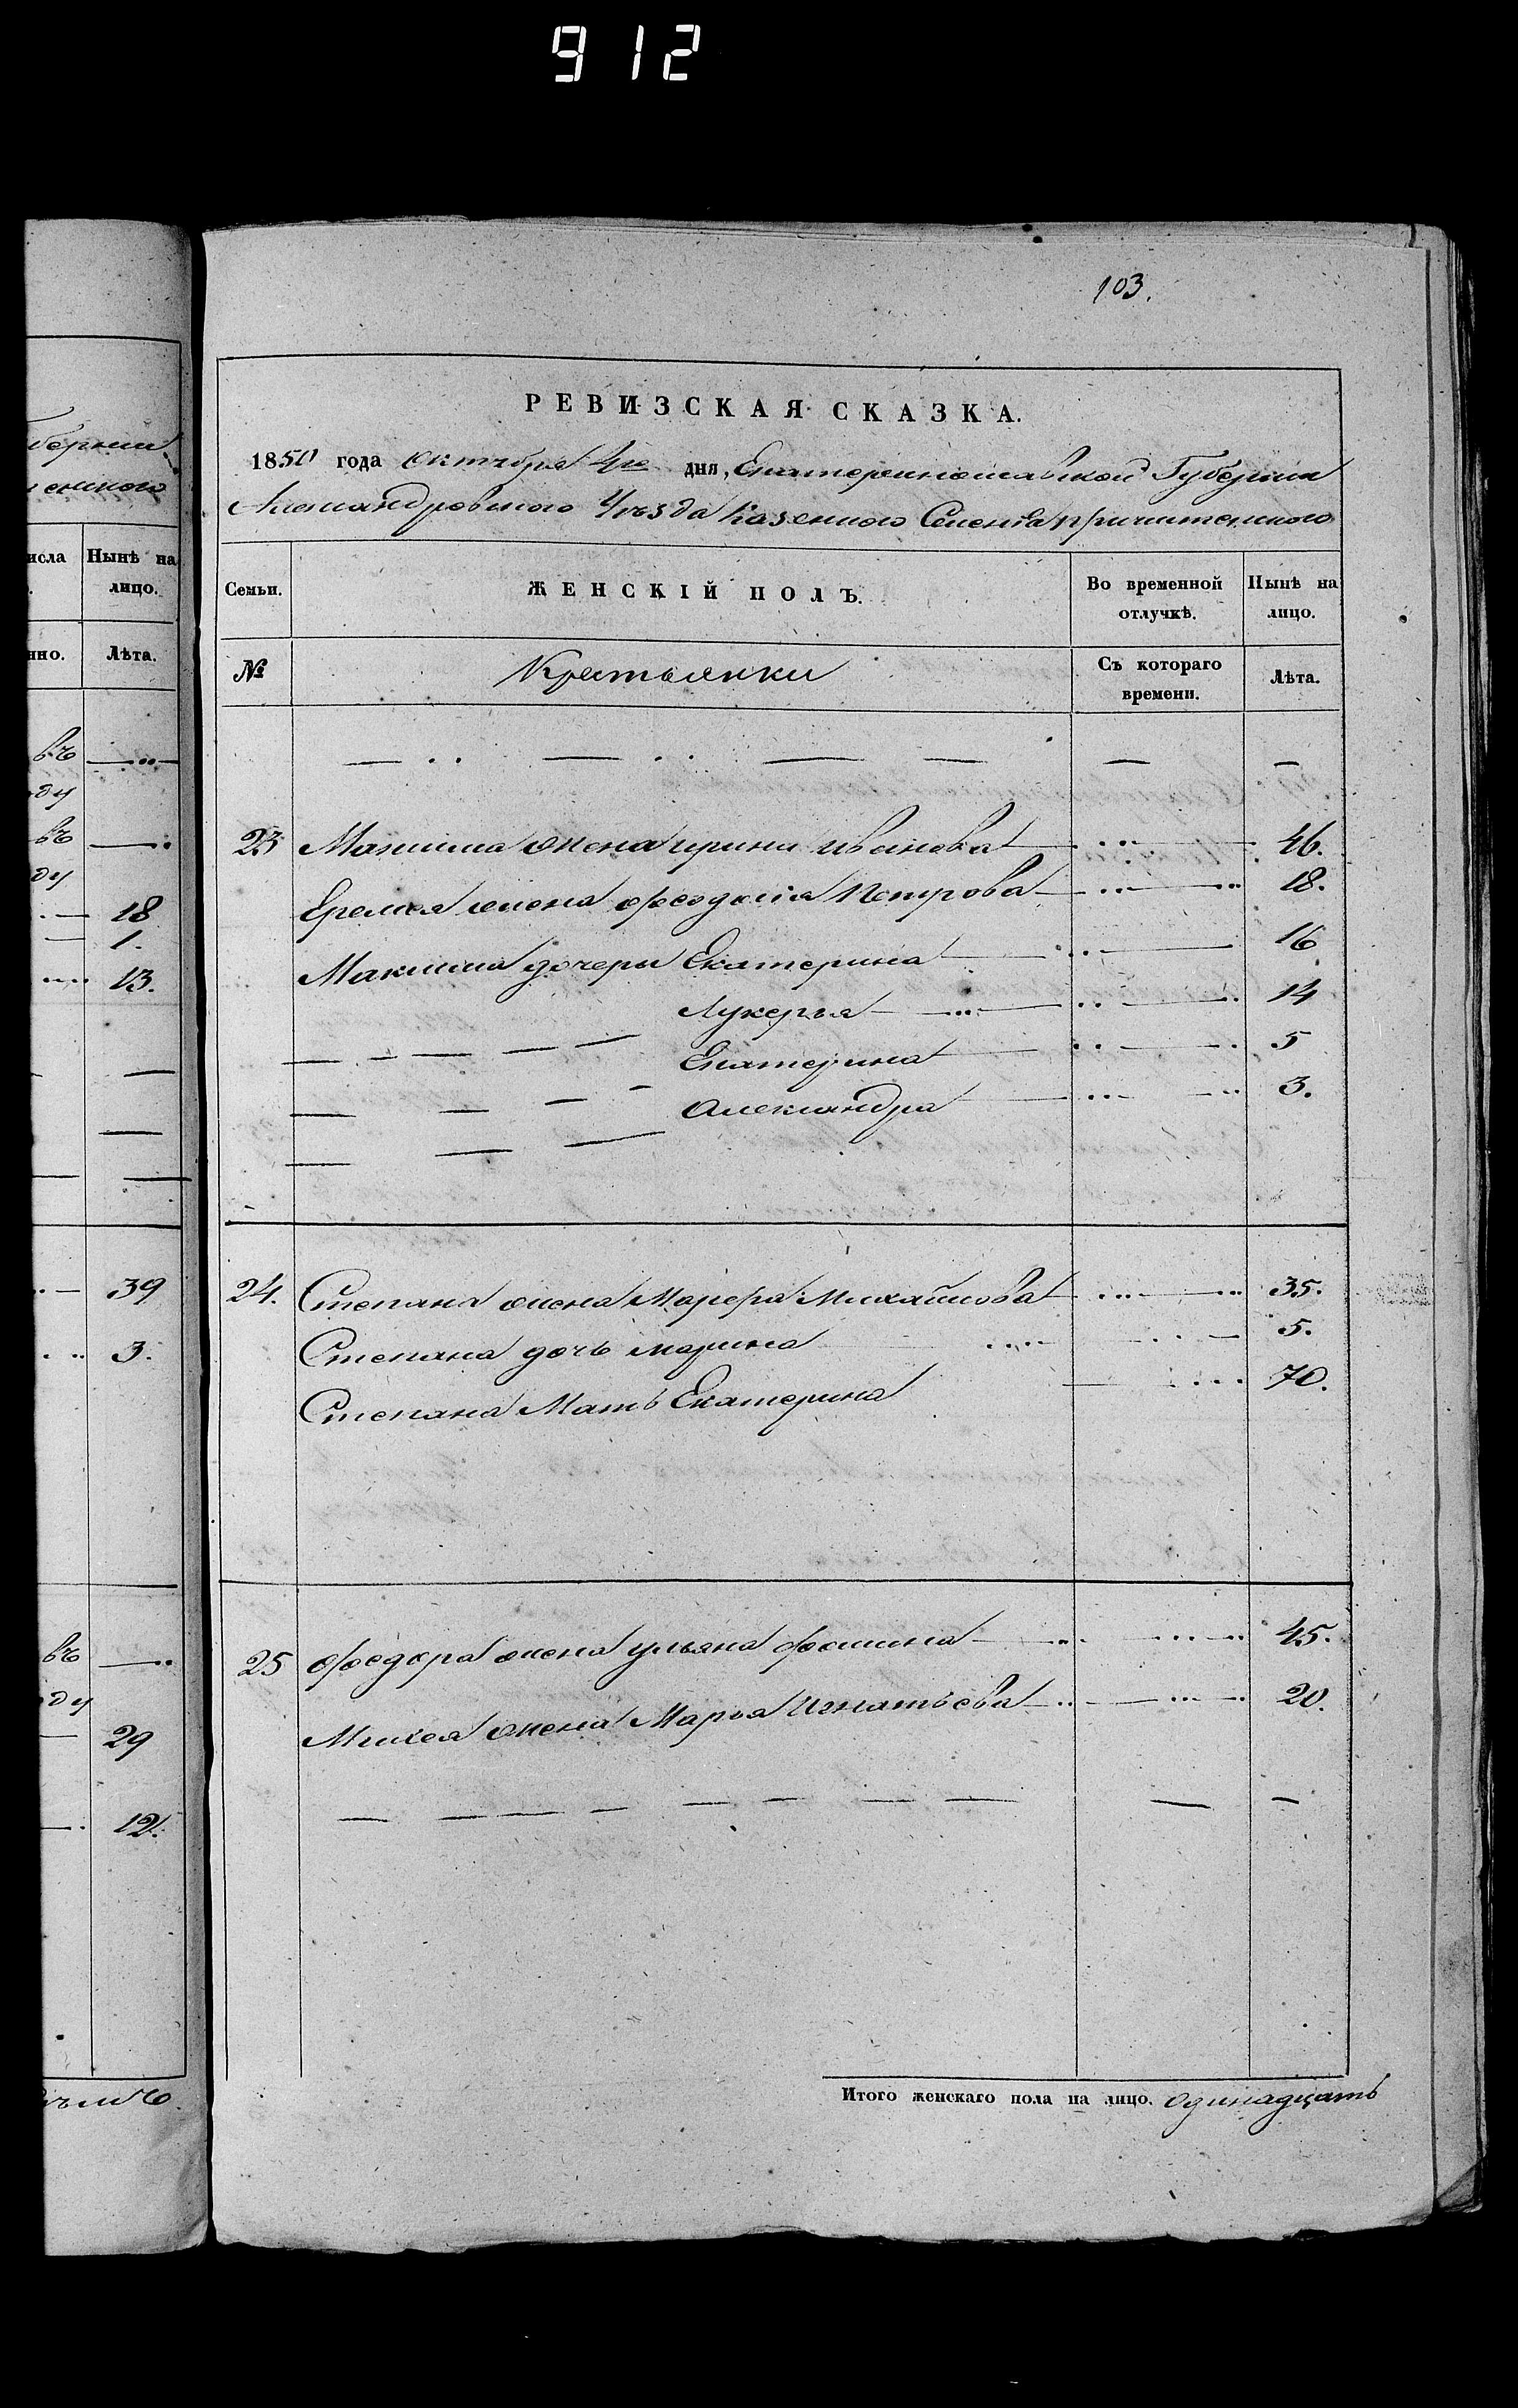 912
103.
РЕВИЗСКАЯ СКАЗКА.
1850 года Октября 4го дня, Екатеринославской Губернии
Александровского Уѣзда Казенного Селения
Семьи. ЖЕНСКІЙ ПОЛЪ. Во временной отлучкѣ. Нынѣ на лицо.
№ Крестьянки Съ котораго времени. Лѣта.
23 Максима жена ирина иванова 46.
Еремея жена феодосія Петрова 18.
Максима дочеры Екатерина 16
Лукерья 14
Екатерина 5
Александра 3.
24. Степана жена Марфра Михайлова 35.
Степана дочь марина 5.
Степана Мать Екатерина 70.
25 федора жена ульяна фомина 45.
Михея жена Марья Игнатьева 20.
Итого женскаго пола на лицо. одинадцать
берніи
енного
исла Нынѣ на
лицо.
нно. Лѣта.
въ
ду
въ
ду
18
1.
13.
39
3.
въ
ду
29
12.